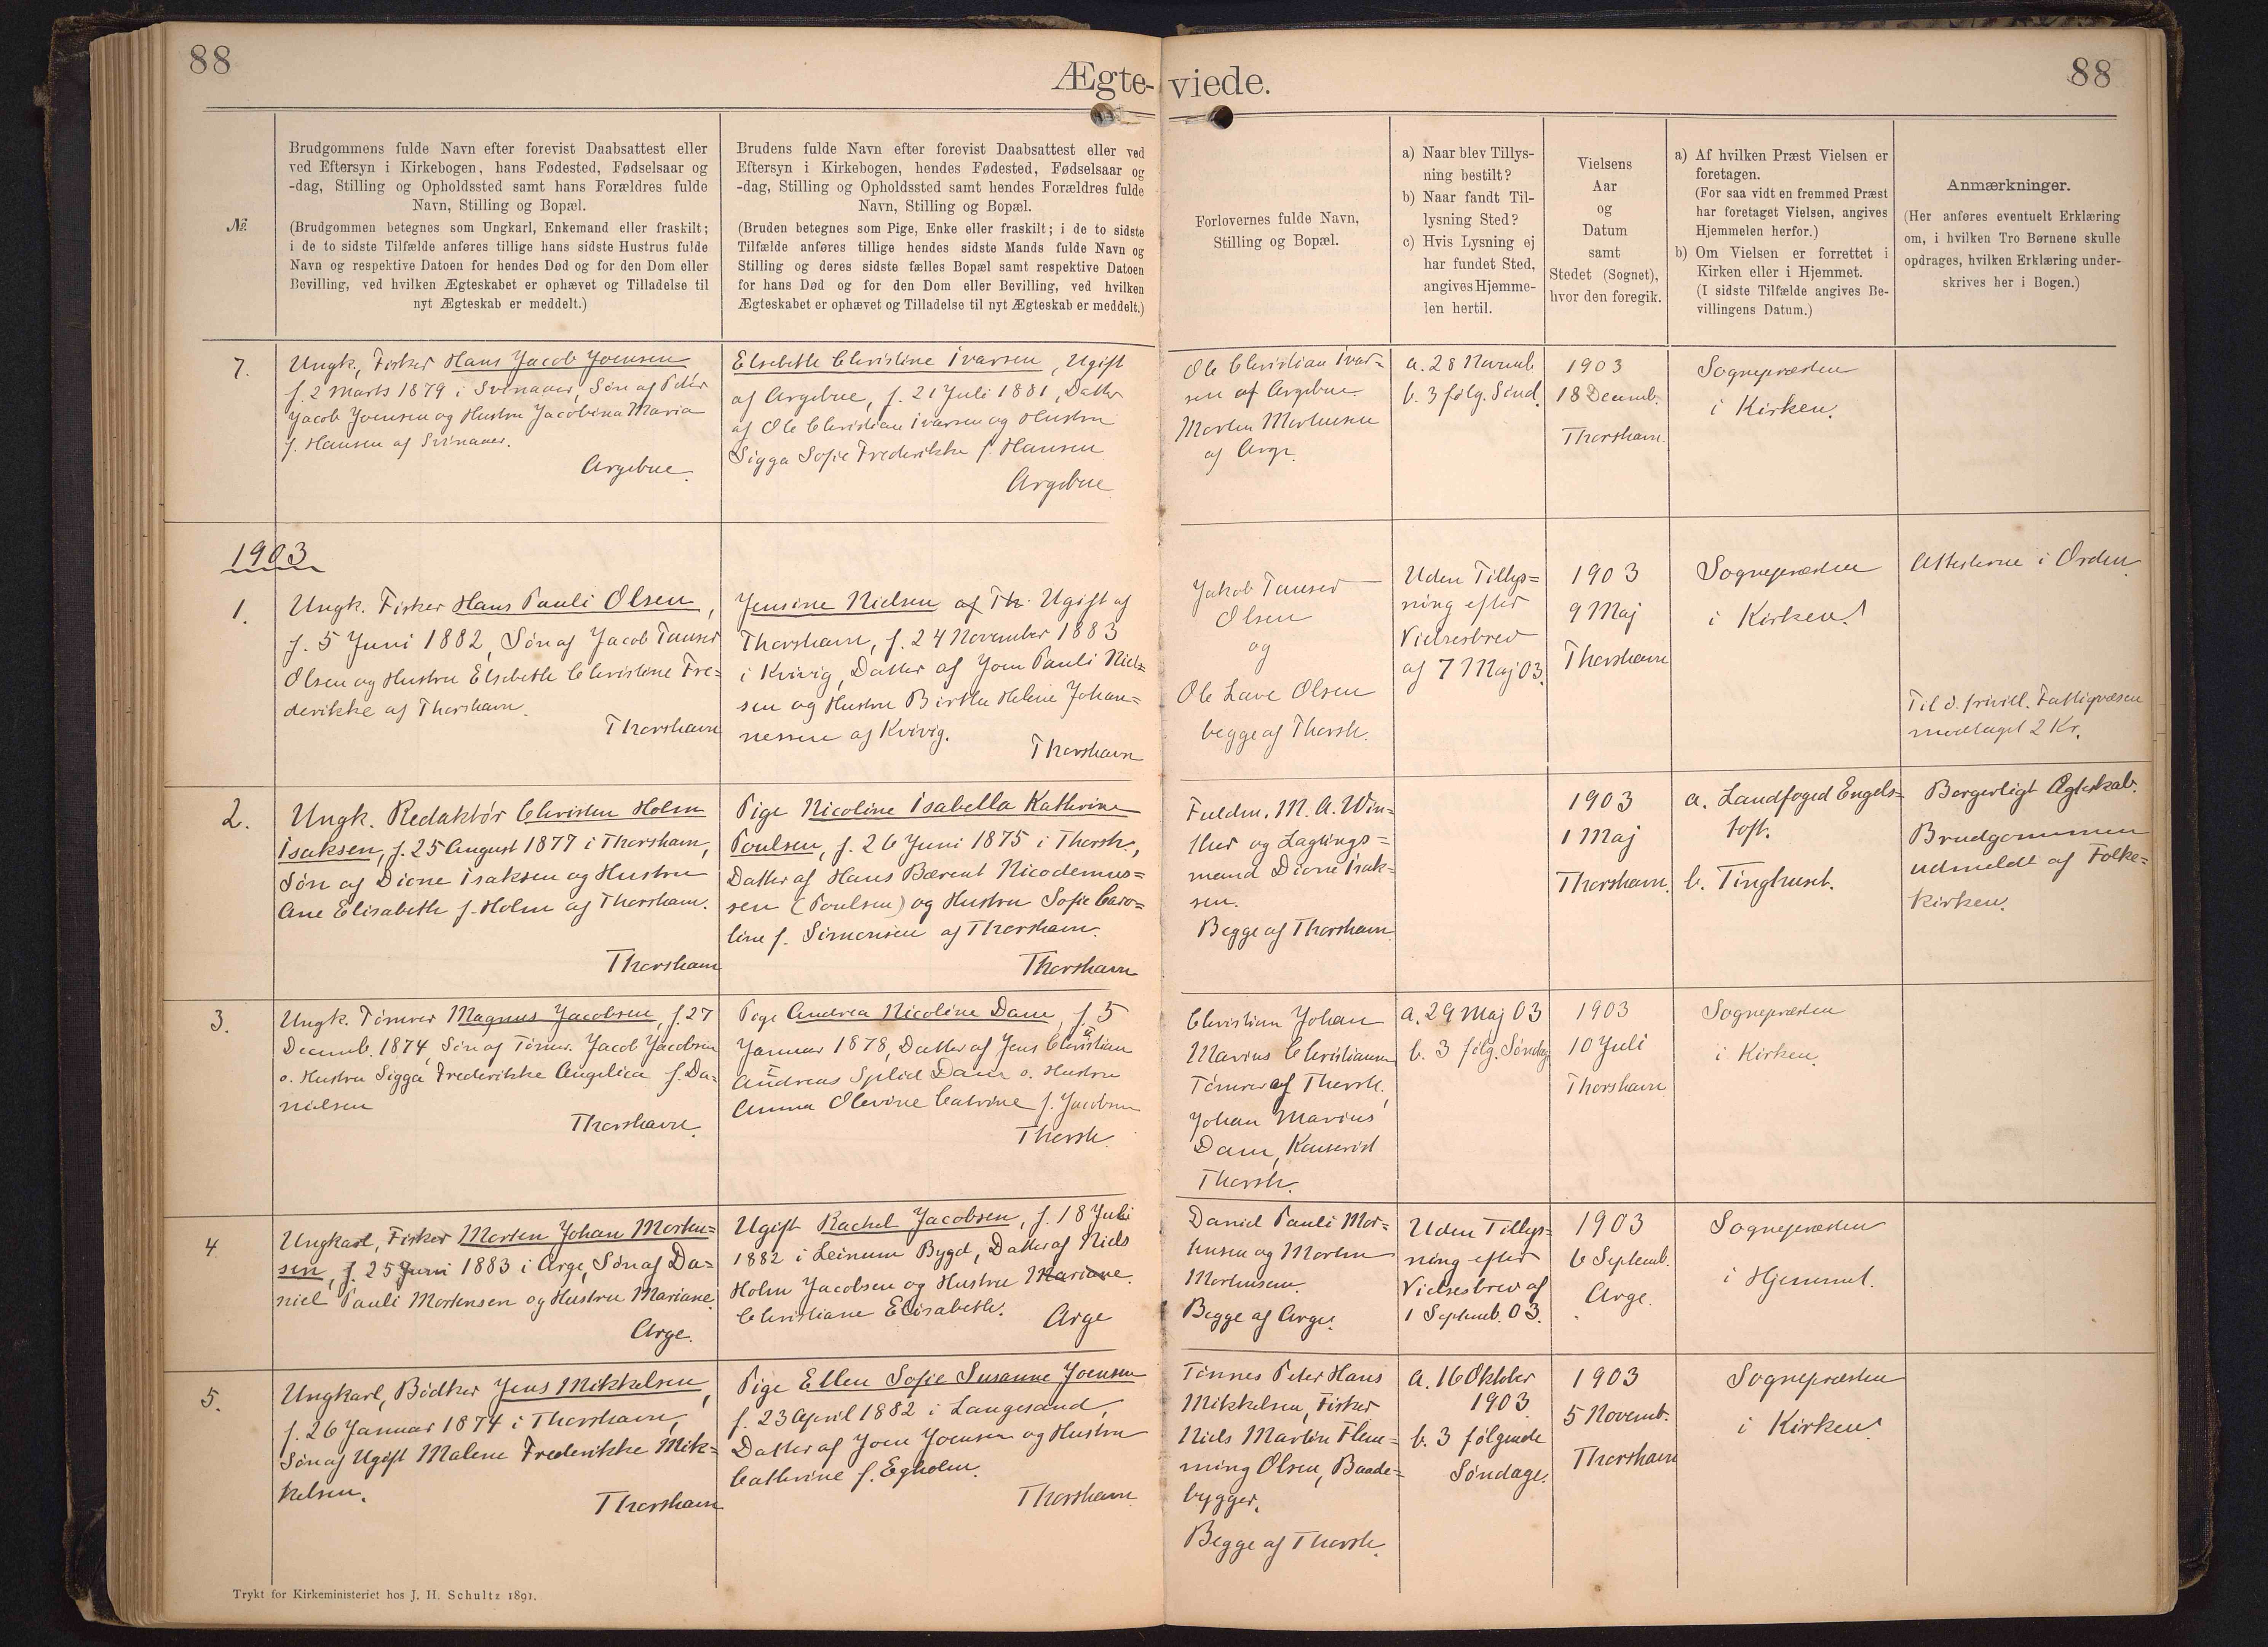 88
Ægte-viede.
88
№
Brudgommens fulde Navn efter forevist Daabsattest eller
ved Eftersyn i Kirkebogen, hans Fødested, Fødselsaar og
-dag, Stilling og Opholdssted samt hans Forældres fulde
Navn, Stilling og Bopæl.
(Brudgommen betegnes som Ungkarl, Enkemand eller fraskilt;
i de to sidste Tilfælde anføres tillige hans sidste Hustrus fulde
Navn og respektive Datoen for hendes Død og for den Dom eller
Bevilling, ved hvilken Ægteskabet er ophævet og Tilladelse til
nyt Ægteskab er meddelt.)
Brudens fulde Navn efter forevist Daabsattest eller ved
Eftersyn i Kirkebogen, hendes Fødested, Fødselsaar og
-dag, Stilling og Opholdssted samt hendes Forældres fulde
Navn, Stilling og Bopæl.
(Bruden betegnes som Pige, Enke eller fraskilt; i de to sidste
Tilfælde anføres tillige hendes sidste Mands fulde Navn og
Stilling og deres sidste fælles Bopæl samt respektive Datoen
for hans Død og for den Dom eller Bevilling, ved hvilken
Ægteskabet er ophævet og Tilladelse til nyt Ægteskab er meddelt.)
Forlovernes fulde Navn,
Stilling og Bopæl.
a) Naar blev Tillys-
ning bestilt?
b) Naar fandt Til-
lysning Sted?
c) Hvis Lysning ej
har fundet Sted,
angives Hjemme-
len hertil.
Vielsens
Aar
og
Datum
samt
Stedet (Sognet),
hvor den foregik.
a) Af hvilken Præst Vielsen er
foretagen.
(For saa vidt en fremmed Præst
har foretaget Vielsen, angives
Hjemmelen herfor.)
b) Om Vielsen er forrettet i
Kirken eller i Hjemmet.
(I sidste Tilfælde angives Be-
villingens Datum.)
Anmærkninger.
(Her anføres eventuelt Erklæring
om, i hvilken Tro Børnene skulle
opdrages, hvilken Erklæring under-
skrives her i Bogen.)
7.
Ungk., Fisker Hans Jacob Joensen
f. 2 Marts 1879 i Svinaaer, Søn af Peter
Jacob Joensen og Hustru Jacobina Maria
f. Hansen af Svinaaer.
Argebue.
Elsebeth Christine Ivarsen, Ugift
af Argebue, f. 21 Juli 1881, Datter
af Ole Christian Ivarsen og Hustru
Sigga Sofie Frederikke f. Hansen
Argebue
Ole Christian Ivar=
sen af Argebue.
Morten Mortensen
af Arge.
a. 28 Novemb.
b. 3 følg. Sønd.
1903
18 Decemb.
Thorshavn.
Sognepræsten
i Kirken.
1903
1.
Ungk. Fisker Hans Pauli Olsen,
f. 5 Juni 1882, Søn af Jacob Tauser
Olsen og Hustru Elsebeth Christine Fre=
derikke af Thorshavn.
Thorshavn
Jensine Nielsen af Th. Ugift af
Thorshavn, f. 24 November 1883
i Kvivig, Datter af Joen Pauli Niel=
sen og Hustru Birthe Helene Johan=
nessen af Kvivig.
Thorshavn
Jakob Tauser
Olsen
og
Ole Lave Olsen
begge af Thorsh.
Uden Tillys=
ning efter
Vielsesbrev
af 7 Maj 03.
1903
9 Maj
Thorshavn
Sognepræsten
i Kirken.
Attesterne i Orden
Til d. frivill. Fattigvæsen
modtaget 2 Kr.
2.
Ungk. Redaktør Christen Holm
Isaksen, f. 25 August 1877 i Thorshavn,
Søn af Dione Isaksen og Hustru
Ane Elisabeth f. Holm af Thorshavn.
Thorshavn
Pige Nicoline Isabella Kathrine
Poulsen, f. 26 Juni 1875 i Thorsh.,
Datter af Hans Bærent Nicodemus=
sen (Poulsen) og Hustru Sofie Caro=
line f. Simonsen af Thorshavn.
Thorshavn
Fuldm. M. A. Win=
ther og Lagtings=
mand Dione Isak=
sen.
Begge af Thorshavn
1903
1 Maj
Thorshavn.
a. Landfoged Engels=
toft.
b. Tinghuset.
Borgerligt Ægteskab.
Brudgommen
udmeldt af Folke=
kirken.
3.
Ungk. Tømrer Magnus Jacobsen, f. 27
Decemb. 1874, Søn af Tømr. Jacob Jacobsen
o. Hustru Sigga Frederikke Angelica f. Da=
nielsen
Thorshavn.
Pige Andrea Nicoline Dam, f. 5
Januar 1878, Datter af Jens Christian
Andreas Splid Dam o. Hustru
Anna Olevine Catrine f. Jacobsen
Thorsh.
Christian Johan
Marius Christiansen
Tømrer af Thorsh.
Johan Marius
Dam, Kunsterist
Thorsh.
a. 29 Maj 03
b. 3 følg. Søndag
1903
10 Juli
Thorshavn
Sognepræsten
i Kirken
4
Ungkarl, Fisker Morten Johan Morten=
sen, f. 25 Juni 1883 i Arge, Søn af Da=
niel Pauli Mortensen og Hustru Mariane.
Arge.
Ugift Rachel Jacobsen, f. 18 Juli
1882 i Leinum Bygd, Datter af Niels
Holm Jacobsen og Hustru Mariane
Christiane Elisabeth.
Arge
Daniel Pauli Mor=
tensen og Morten
Mortensen.
Begge af Arge.
Uden Tillys=
ning efter
Vielsesbrev af
1 Septemb. 03.
1903
6 Septemb.
Arge.
Sognepræsten
i Hjemmet.
5.
Ungkarl, Bødker Jens Mikkelsen,
f. 26 Januar 1874 i Thorshavn,
Søn af Ugift Malene Frederikke Mik=
kelsen.
Thorshavn
Pige Ellen Sofie Susanne Joensen
f. 23 April 1882 i Langesand,
Datter af Joen Joensen og Hustru
Cathrine f. Egholm.
Thorshavn
Tønnes Peter Hans
Mikkelsen, Fisker
Niels Martin Flem=
ming Olsen, Baade=
bygger.
Begge af Thorsh.
a. 16 Oktober
1903
b. 3 følgende
Søndage.
1903
5 Novemb.
Thorshavn
Sognepræsten
i Kirken.
Trykt for Kirkeministeriet hos J. H. Schultz 1891.